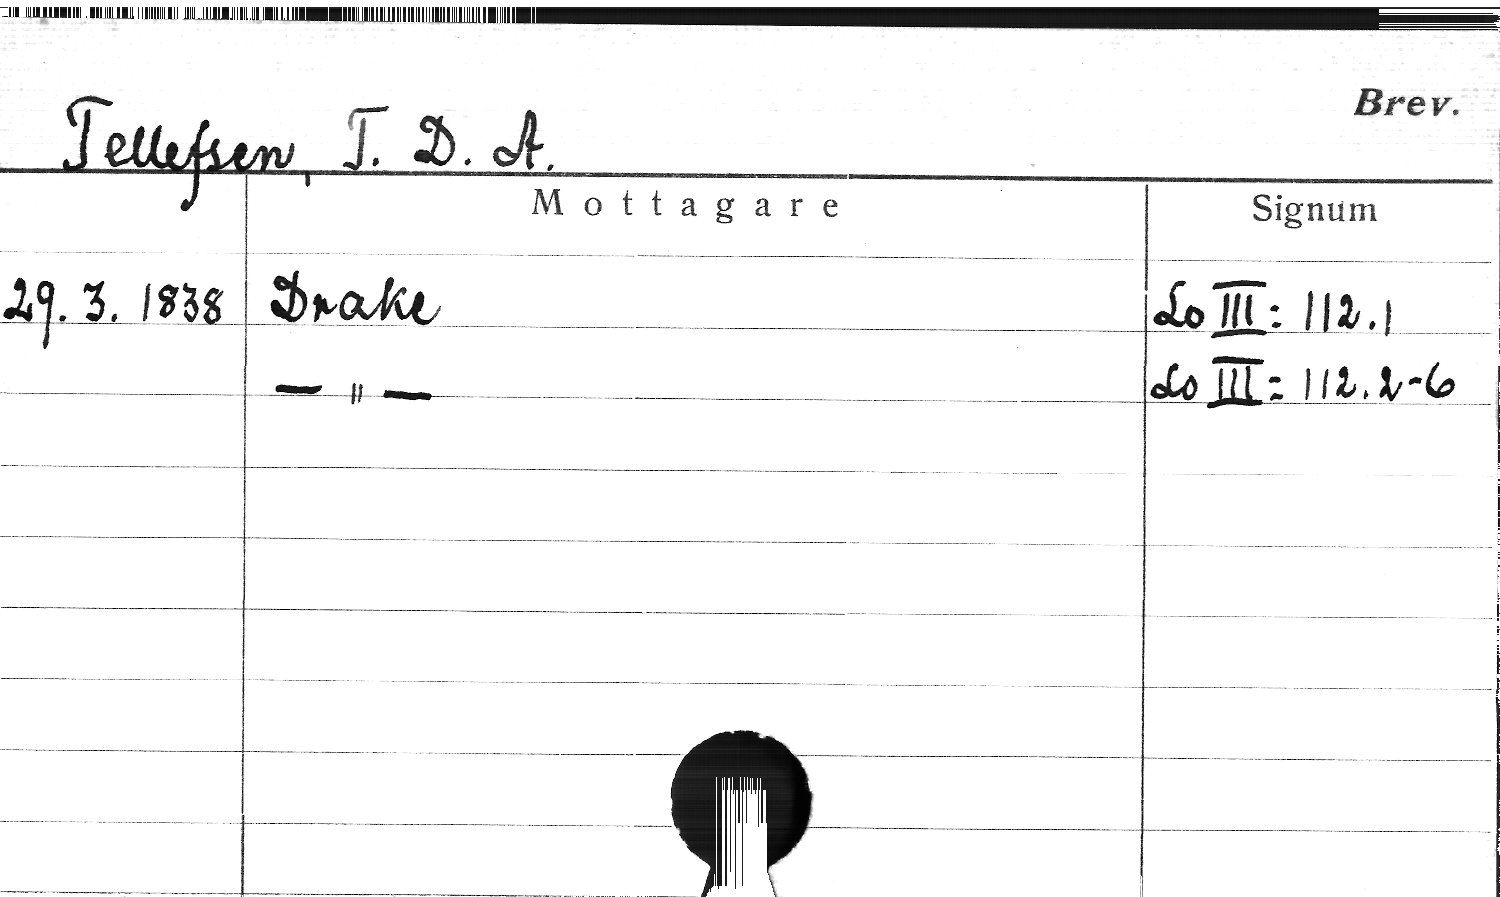 Brev.
Tellefsen, T. D. A.
Mottagare Signum
29. 3. 1838 Drake Lo III: 112.1
— " — Lo III: 112.2-6